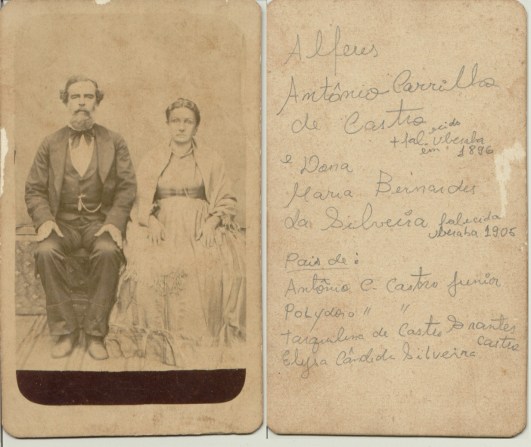 Alferes
Antônio Carrilho
de Castro
+ falecido Uberaba
em 1896
e Dona
Maria Bernardes
da Silveira falecida
Uberaba 1905
Pais de:
Antônio C. Castro Junior
Polydoro " "
Tarquilina de Castro Arantes
Castro
Elysa Cândida Silveira